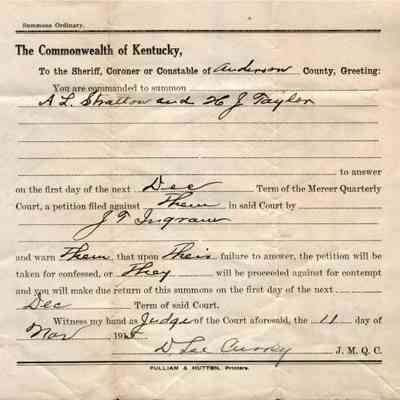 Summons Ordinary.
The Commonwealth of Kentucky,
To the Sheriff, Coroner or Constable of Anderson County, Greeting:
You are commanded to summon
A L Stratton and H J Taylor
to answer
on the first day of the next Dec Term of the Mercer Quarterly
Court, a petition filed against Them in said Court by
J T Ingram
and warn Them that upon Their failure to answer, the petition will be
taken for confessed, or They will be proceeded against for contempt
and you will make due return of this summons on the first day of the next
Dec Term of said Court.
Witness my hand as Judge of the Court aforesaid, the 11 day of
Nov 191
D Lee Curry J. M. Q. C.
PULLIAM & HUTTON, Printers.